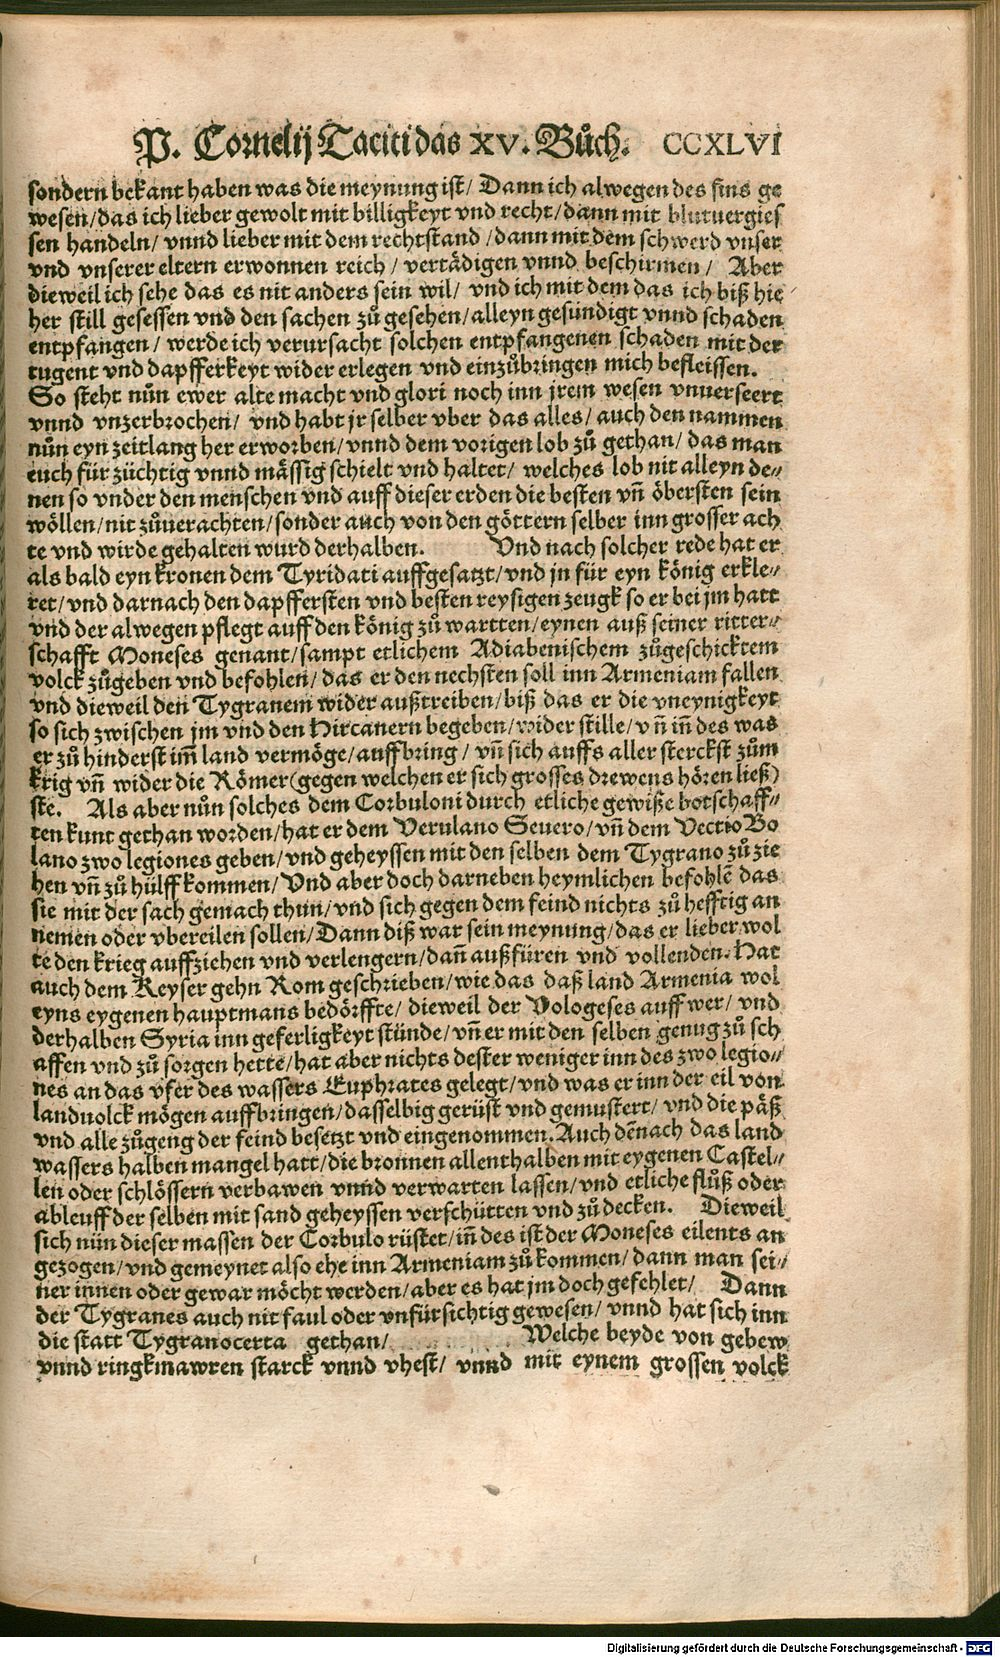 P. Cornelij Taciti das XV. Bůch. CCXLVI
sondern bekant haben was die meynung ist/ Dann ich alwegen des sins ge
wesen/das ich lieber gewolt mit billigkeyt vnd recht/dann mit blutuergies
sen handeln/ vnnd lieber mit dem rechtstand /dann mit dem schwerd vnser
vnd vnserer eltern erwonnen reich / vertädigen vnnd beschirmen / Aber
dieweil ich sehe das es nit anders sein wil/ vnd ich mit dem das ich biß hie
her still gesessen vnd den sachen zů gesehen/alleyn gesündigt vnnd schaden
entpfangen / werde ich verursacht solchen entpfangenen schaden mit der
tugent vnd dapfferkeyt wider erlegen vnd einzůbringen mich befleissen.
So steht nůn ewer alte macht vnd glori noch inn jrem wesen vnuerseert
vnnd vnzerbrochen/ vnd habt jr selber vber das alles/ auch den nammen
nůn eyn zeitlang her erworben/vnnd dem vorigen lob zů gethan/ das man
euch für züchtig vnnd mässig schielt vnd haltet/ welches lob nit alleyn de⸗
nen so vnder den menschen vnd auff dieser erden die besten vñ öbersten sein
wöllen/nit zůuerachten/sonder auch von den göttern selber inn grosser ach
te vnd wirde gehalten wurd derhalben. Vnd nach solcher rede hat er
als bald eyn kronen dem Tyridati auffgesatzt/vnd jn für eyn könig erkle⸗
ret/vnd darnach den dapffersten vnd besten reysigen zeugk so er bei jm hatt
vnd der alwegen pflegt auff den könig zů wartten/eynen auß seiner ritter⸗
schafft Moneses genant/sampt etlichem Adiabenischem zůgeschicktem
volck zůgeben vnd befohlen/das er den nechsten soll inn Armeniam fallen
vnd dieweil den Tygranem wider außtreiben/biß das er die vneynigkeyt
so sich zwischen jm vnd den Hircanern begeben/wider stille/vñ iñ des was
er zů hinderst im̃ land vermöge/auffbring / vñ sich auffs aller sterckst zům
krig vñ wider die Römer (gegen welchen er sich grosses drewens hören ließ)
ste. Als aber nůn solches dem Corbuloni durch etliche gewiße botschaff⸗
ten kunt gethan worden/hat er dem Verulano Seuero/vñ dem Vectio Bo
lano zwo legiones geben/vnd geheyssen mit den selben dem Tygrano zů zie
hen vñ zů hülff kommen/Vnd aber doch darneben heymlichen befohlẽ das
sie mit der sach gemach thun/vnd sich gegen dem feind nichts zů hefftig an
nemen oder vbereilen sollen/Dann diß war sein meynung/das er lieber wol
te den krieg auffziehen vnd verlengern/dañ außfüren vnd vollenden. Hat
auch dem Keyser gehn Rom geschrieben/wie das daß land Armenia wol
eyns eygenen hauptmans bedörffte/ dieweil der Vologeses auff wer/ vnd
derhalben Syria inn geferligkeyt stünde/vñ er mit den selben genug zů sch
affen vnd zů sorgen hette/hat aber nichts dester weniger inn des zwo legio⸗
nes an das vfer des wassers Euphrates gelegt/vnd was er inn der eil von
landuolck mögen auffbringen/dasselbig gerüst vnd gemustert/ vnd die päß
vnd alle zůgeng der feind besetzt vnd eingenommen. Auch dẽnach das land
wassers halben mangel hatt/die bronnen allenthalben mit eygenen Castel⸗
len oder schlössern verbawen vnnd verwarten lassen/vnd etliche flůß oder
ableuff der selben mit sand geheyssen verschütten vnd zů decken. Dieweil
sich nün dieser massen der Corbulo rüstet/iñ des ist der Moneses eilents an
gezogen/vnd gemeynet also ehe inn Armeniam zů kommen/dann man sei⸗
ner innen oder gewar möcht werden/aber es hat jm doch gefehlet/ Dann
der Tygranes auch nit faul oder vnfürsichtig gewesen/ vnnd hat sich inn
die statt Tygranocerta gethan/ Welche beyde von gebew
vnnd ringkmawren starck vnnd vhest/ vnnd mit eynem grossen volck
Digitalisierung gefördert durch die Deutsche Forschungsgemeinschaft - DFG